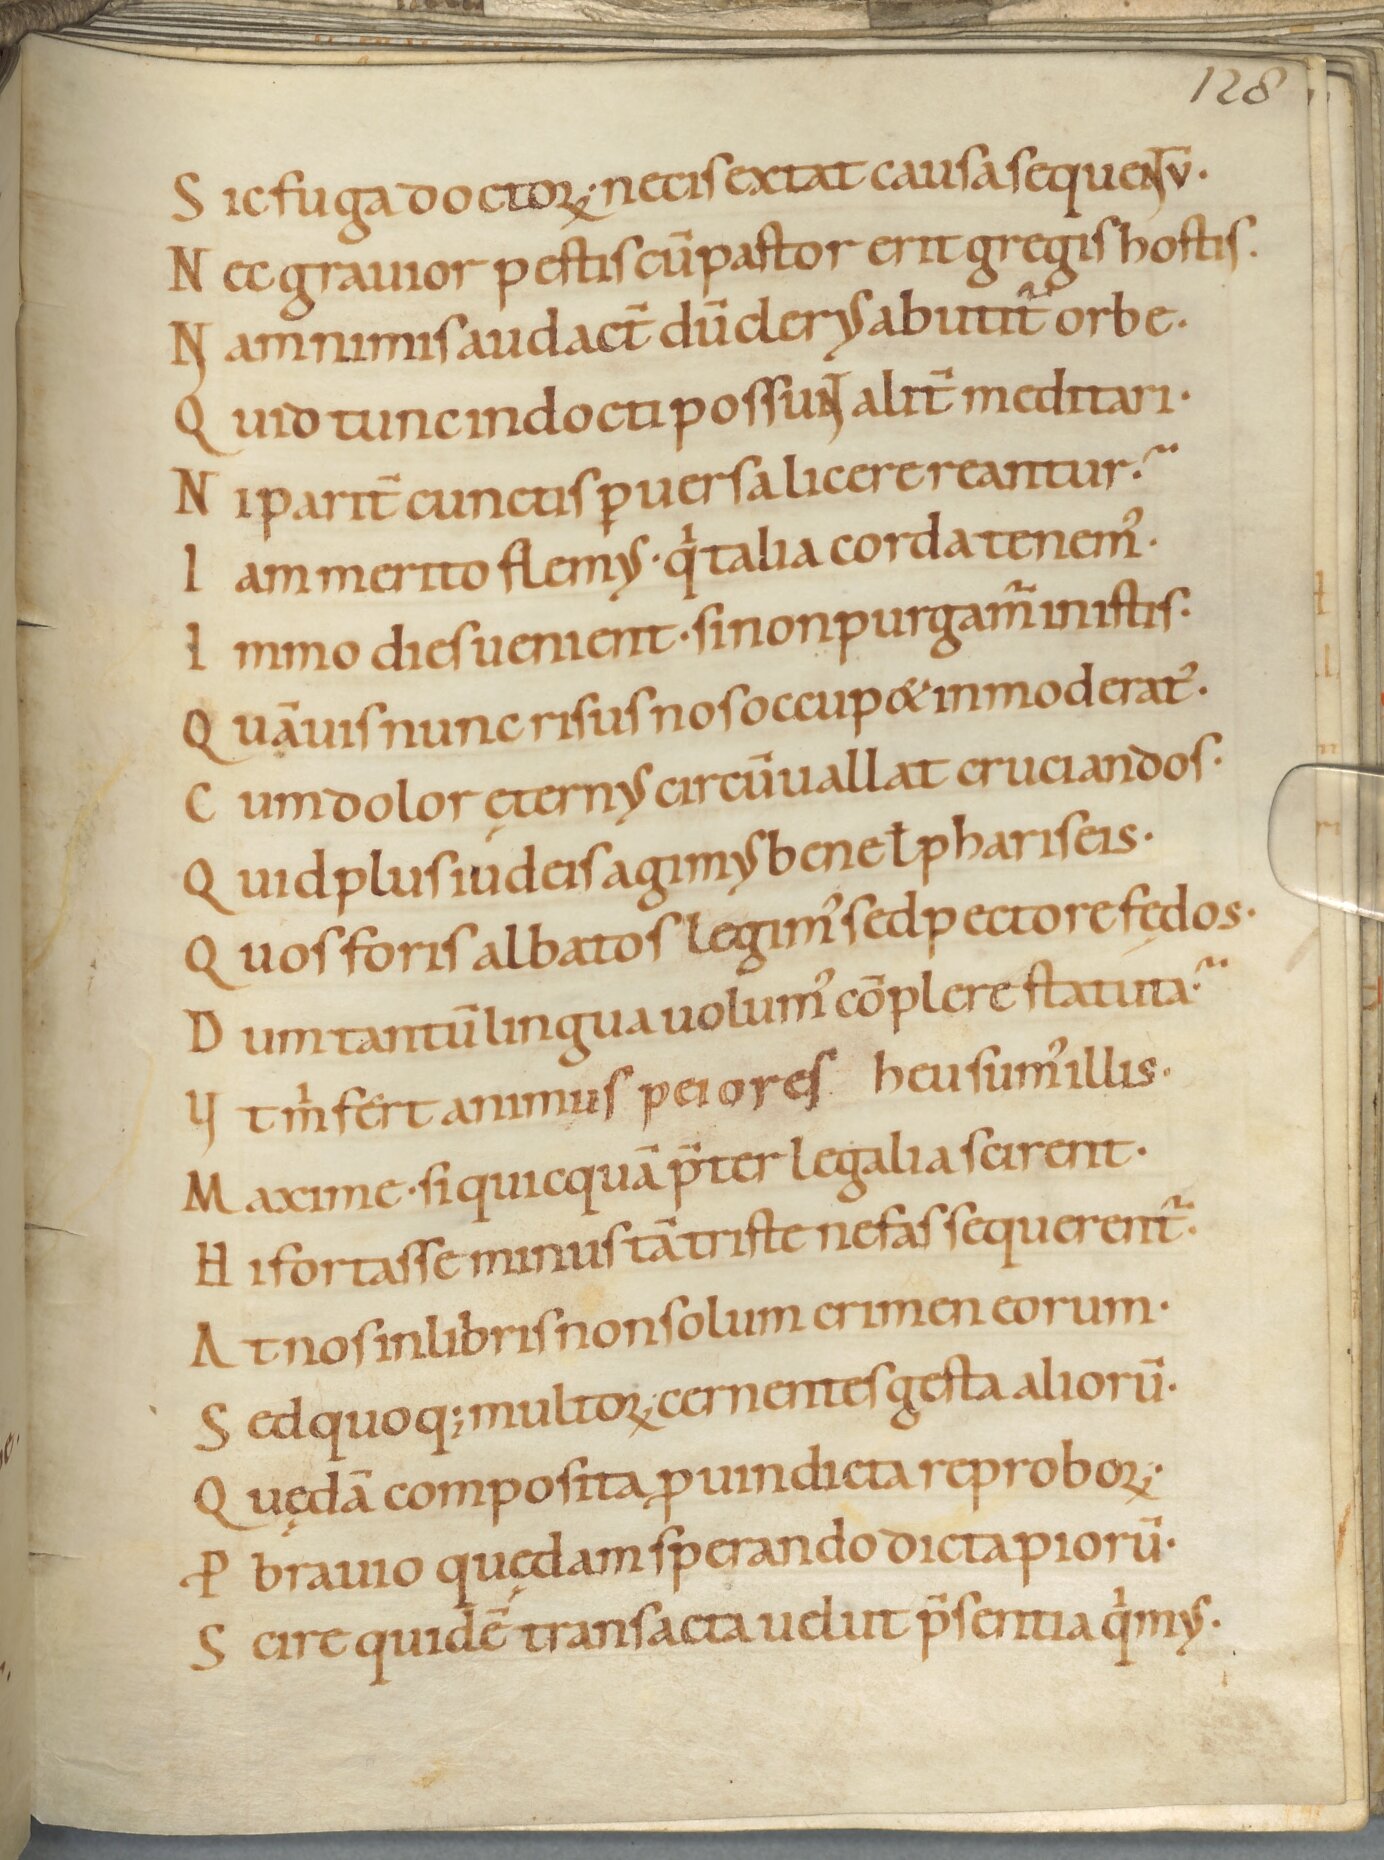 128
Sic fuga doctoꝝ· necis extat causa sequentū·
Nec grauior pestis cū pastor erit gregis hostis·
Nam nimis audact̄ dū clerꝰ abutit᷑ orbe·
Quid tunc indocti possunt alit̄ meditari·
Ni parit̄ cunctis ꝑuersa licere reantur·
Iam merito flemꝰ· qͥ talia corda tenemꝰ·
Immo dies uenient· si non purgam᷑ in istis·
Quāuis nunc risus nos occup& inmoderatꝰ·
Cum dolor ęternꝰ circūuallat cruciandos·
Quid plus iudeis agimꝰ bene ł phariseis·
Quos foris albatos legimꝰ sed pectore fędos·
Dum tantū lingua uolumꝰ cōplere statuta·
Vt mͥ fert animus peiores heu sumꝰ illis·
Maxime· si quicquā p̄ter legalia scirent·
Hi fortasse minus tā triste nefas sequerent᷑·
At nos in libris non solum crimen eorum·
Sed quoq; multoꝝ cernentes gesta aliorū·
Quędā composita ꝓ uindicta reproboꝝ·
Ꝓ brauio quędam sperando dicta piorū·
Scire quidē transacta uelut p̄sentia qͥmꝰ·